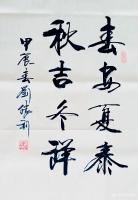 春安夏泰
秋吉冬祥
甲辰春劉勝利